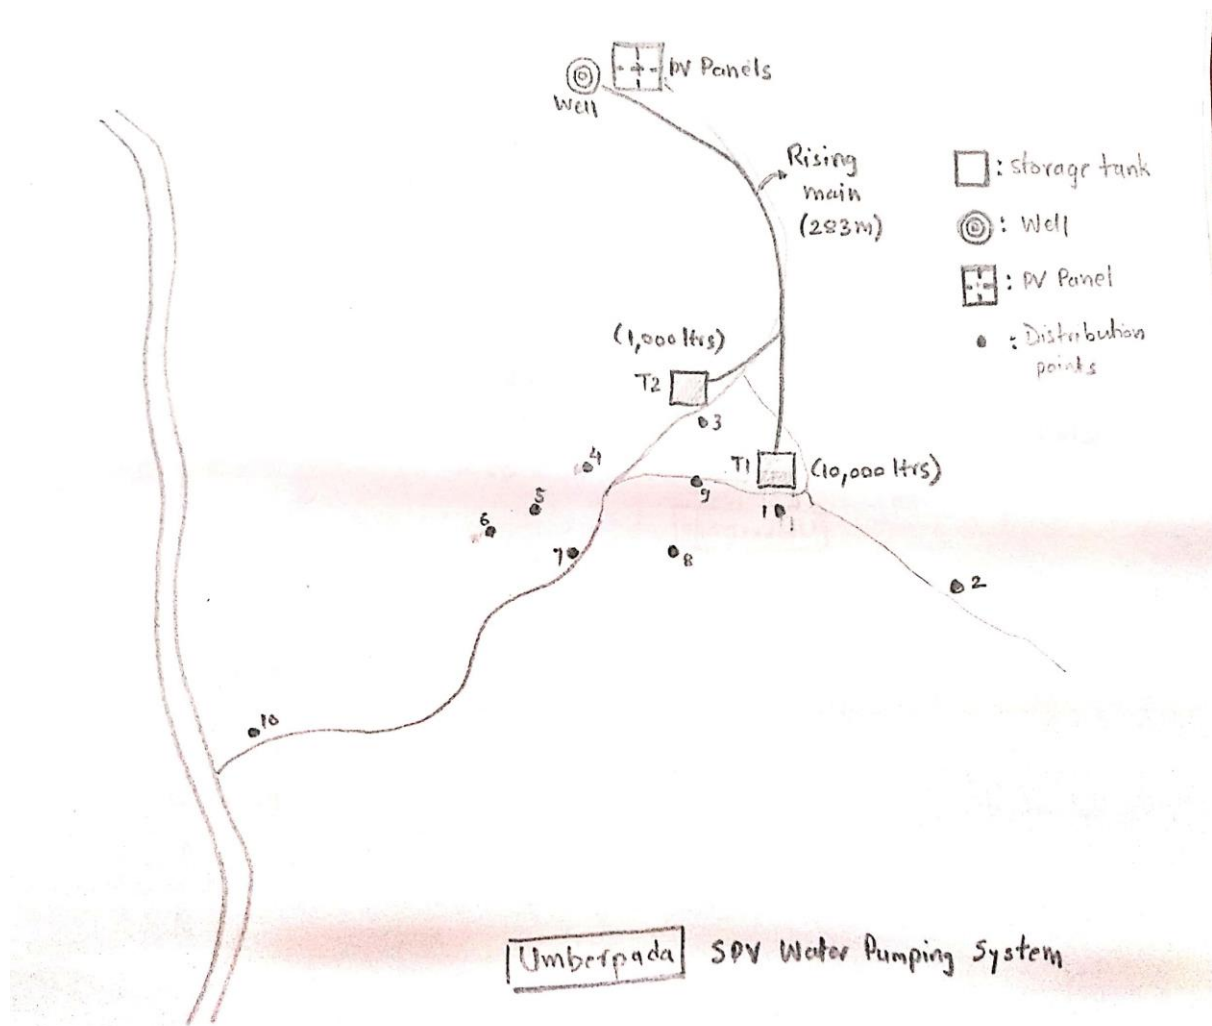 PV Panels
Well
Rising
main
(283m)
: Storage tank
: Well
: PV Panel
: Distribution
points
(1,000 ltrs)
T2
3
4
T1
(10,000 ltrs)
9
5
1
6
7
8
2
10
Umberpada SPV Water Pumping System